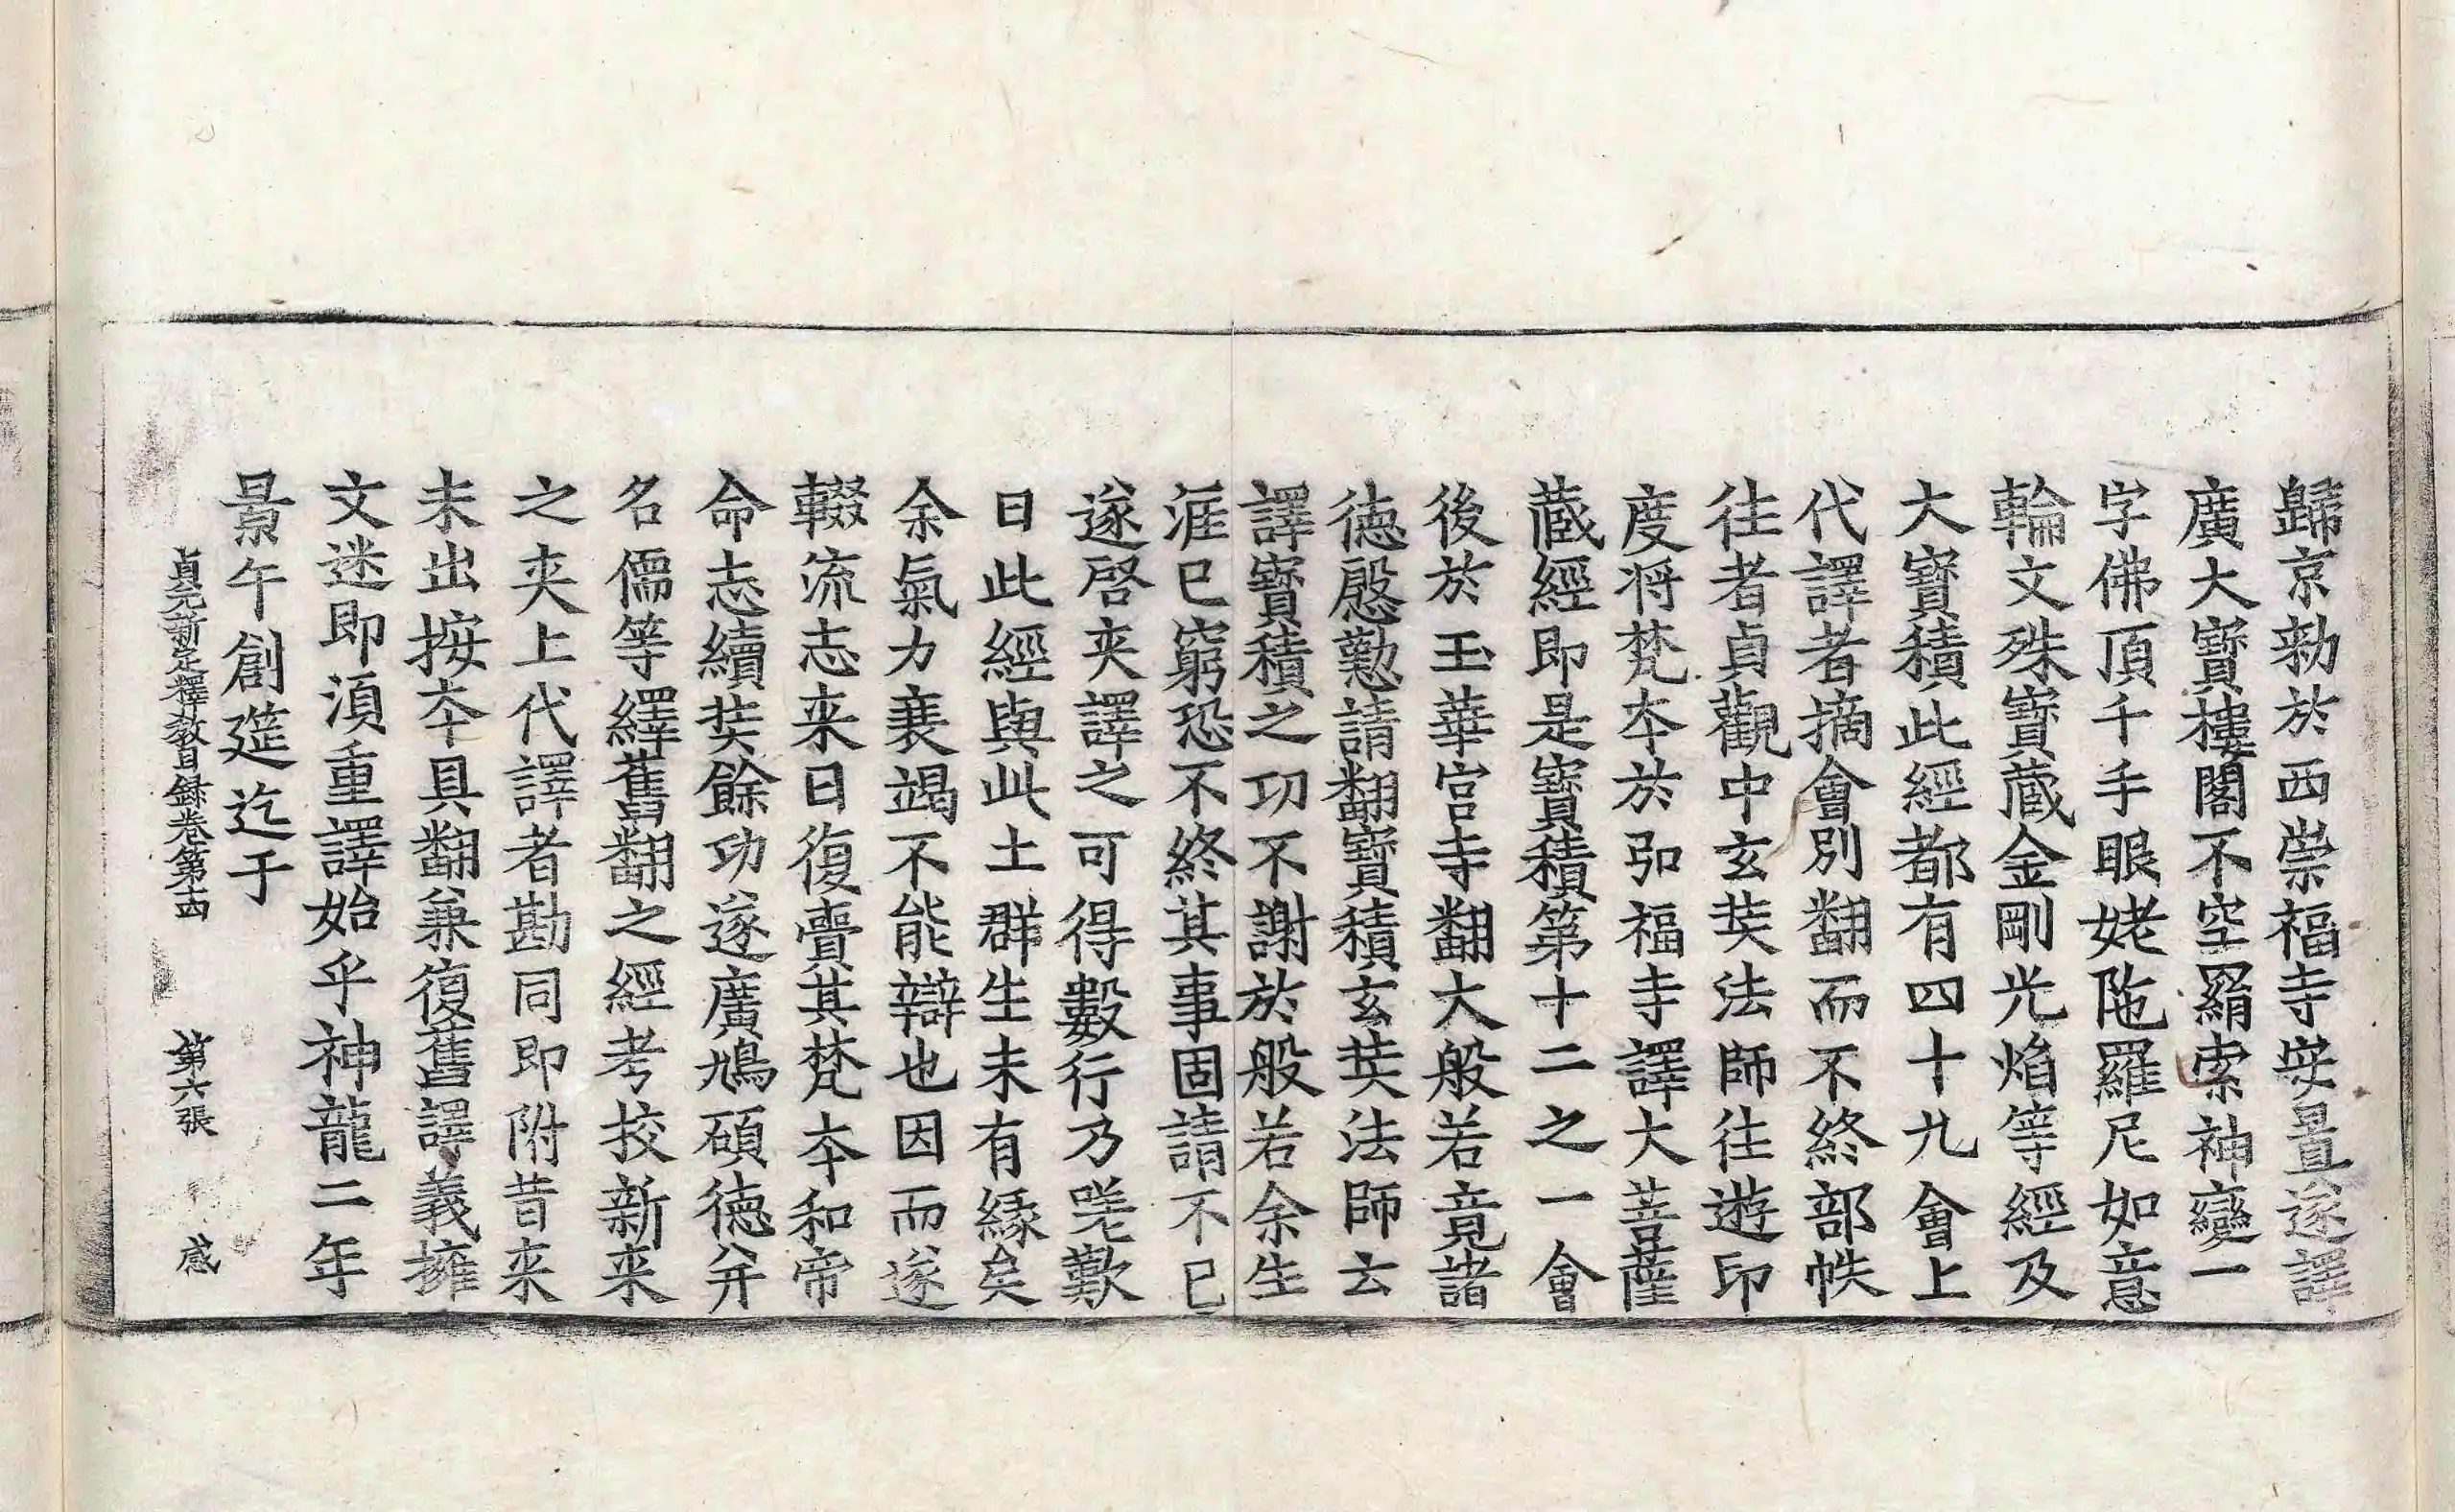 歸京勑於西崇福寺安置遂譯
廣大寶樓閣不空羂索神變一
字佛頂千手眼姥陁羅尼如意
輪文殊寶藏金剛光焰等經及
大寶積此經都有四十九會上
代譯者摘會別翻而不終部帙
徃者貞觀中玄奘法師徃遊印
度将梵夲於弘福寺譯大菩薩
藏經即是寶積第十二之一會
後於玉華宮寺翻大般若竟諸
德慇懃請翻寶積玄奘法師云
譯寶積之功不謝於般若余生
涯已窮恐不終其事固請不已
遂啓夾譯之可得數行乃嗟歎
曰此經與此土群生未有緣矣
余氣力衰竭不能辯也因而遂
輟流志来日復賷其梵夲和帝
命志續奘餘功遂廣鳩碩德并
名儒等繹舊翻之經考挍新来
之夾上代譯者勘同即附昔来
未出按夲具翻兼復舊譯義擁
文迷即湏重譯始乎神龍二年
景午創莚迄于
貞元新定釋教目録卷第十四 第六張 感